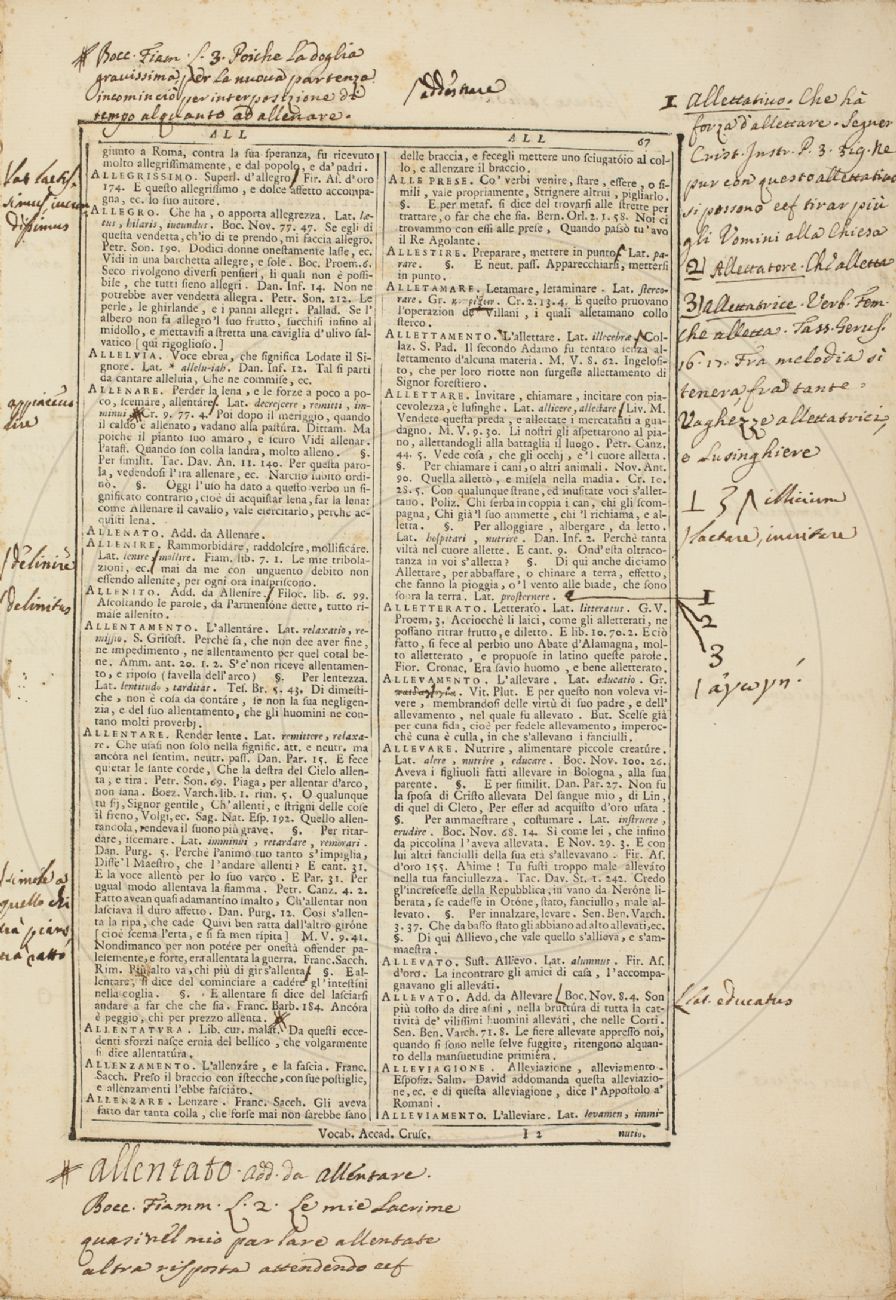 Bocc. Fiam. L. 3. Poiche La doglia
gravissima, per la nuova partenza
incominciò per interposizione di
tempo alquanto ad allenare.
addestrare
ALL
ALL 67
giunto a Roma, contra la sua speranza, fu ricevuto
molto allegrissimamente, e dal popolo, e da' padri.
ALLEGRISSIMO. Superl. d'allegro. Fir. As. d'oro
174. E questo allegrissimo, e dolce affetto accompa-
gna, ec. lo suo autore.
ALLEGRO. Che ha, o apporta allegrezza. Lat. læ-
tus, hilaris, iucundus. Boc. Nov. 77. 47. Se egli di
questa vendetta, ch'io di te prendo, mi faccia allegro.
Petr. Son. 190. Dodici donne onestamente lasse, ec.
Vidi in una barchetta allegre, e sole. Boc. Proem. 6.
Seco rivolgono diversi pensieri, li quali non è possi-
bile, che tutti sieno allegri. Dan. Inf. 14. Non ne
potrebbe aver vendetta allegra. Petr. Son. 212. Le
perle, le ghirlande, e i panni allegri. Pallad. Se l'
albero non fa allegro 'l suo frutto, succhisi infino al
midollo, e mettavisi astretta una caviglia d'ulivo sal-
vatico [qui rigoglioso.]
ALLELVIA. Voce ebrea, che significa Lodate il Si-
gnore. Lat. * allelu-iah. Dan. Inf. 12. Tal si partì
da cantare alleluia, Che ne commise, ec.
ALLENARE. Perder la lena, e le forze a poco a po-
co, scemare, allentare. Lat. decrescere, remitti, im-
minui. Cr. 9. 77. 4. Poi dopo il meriggio, quando
il caldo è allenato, vadano alla pastura. Dittam. Ma
poichè il pianto suo amaro, e scuro Vidi allenar.
Pataff. Quando son calla landra, molto alleno. §.
Per similit. Tac. Dav. An. 11. 140. Per questa paro-
la, vedendosi l'ira allenare, ec. Narciso subito ordi-
nò. §. Oggi l'uso ha dato a questo verbo un si-
gnificato contrario, cioè di acquistar lena, far la lena:
come Allenare il cavallo, vale esercitarlo, perchè ac-
quisti lena.
ALLENATO. Add. da Allenare.
ALLENIRE. Rammorbidare, raddolcire, mollificare.
Lat. lenire mollire. Fiam. lib. 7. 1. Le mie tribola-
zioni, ec. mai da me con unguento debito non
essendo allenite, per ogni ora inasprıscono.
ALLENITO. Add. da Allenire. Filoc. lib. 6. 99.
Ascoltando le parole, da Parmenione dette, tutto ri-
mase allenito.
ALLENTAMENTO. L'allentare. Lat. relaxatio, re-
missio. S. Grisost. Perchè sa, che non dee aver fine,
ne impedimento, ne allentamento per quel cotal be-
ne. Amm. ant. 20. 1. 2. S'e' non riceve allentamen-
to, e riposo (favella dell'arco) §. Per lentezza.
Lat. lentitudo, tarditas. Tes. Br. 5. 43. Di dimesti-
che, non è cosa da contare, se non la sua negligen-
zia, e del suo allentamento, che gli huomini ne con-
tano molti proverbj.
ALLENTARE. Render lente. Lat. remittere, relaxa-
re. Che usasi non solo nella signific. att. e neutr. ma
ancóra nel sentim. neutr. pass. Dan. Par. 15. E fece
quietar le sante corde, Che la destra del Cielo allen-
ta, e tira. Petr. Son. 69. Piaga, per allentar d'arco,
non sana. Boez. Varch. lib. 1. rim. 5. O qualunque
tu sij, Signor gentile, Ch'allenti, e strigni delle cose
il freno, Volgi, ec. Sag. Nat. Esp. 192. Quello allen-
tancola, rendeva il suono più grave. §. Per ritar-
dare, iscemare. Lat. imminui, retardare, remorari.
Dan. Purg. 5. Perchè l'animo tuo tanto s'impiglia,
Disse 'l Maestro, che l'andare allenti? E cant. 31.
E la voce allentò per lo suo varco. E Par. 31. Per
ugual modo allentava la fiamma. Petr. Canz. 4. 2.
Fatto avean quasi adamantino smalto, Ch'allentar non
lasciava il duro affetto. Dan. Purg. 12. Così s'allen-
ta la ripa, che cade Quivi ben ratta dall'altro giróne
[cioè scema l'erta, e si fa men ripita] M. V. 9. 41.
Nondimanco per non potére per onestà offender pa-
lesemente, e forte, era allentata la guerra. Franc. Sacch.
Rim. Più alto va, chi più di gir s'allenta. §. E al-
lentare, si dice del cominciare a cadére gl'intestini
nella coglia. §. E allentare si dice del lasciarsi
andare a far che che sia. Franc. Barb. 184. Ancóra
è peggio, chi per prezzo allenta.
ALLENTATVRA. Lib. cur. malat. Da questi ecce-
denti sforzi nasce ernia del bellico, che volgarmente
si dice allentatúra.
ALLENZAMENTO. L'allenzáre, e la fascia. Franc.
Sacch. Preso il braccio con istecche, con sue postiglie,
e allenzamenti l'ebbe fasciato.
ALLENZARE. Lenzare. Franc. Sacch. Gli aveva
fatto dar tanta colla, che forse mai non sarebbe sano
delle braccia, e fecegli mettere uno sciugatóio al col-
lo, e allenzare il braccio.
ALLE PRESE. Co' verbi venire, stare, essere, o si-
mili, vale propriamente, Strignere altrui, pigliarlo.
§. E per metaf. si dice del trovarsi alle strette per
trattare, o far che che sia. Bern. Orl. 2. 1. 58. Noi ci
trovammo con essi alle prese, Quando passò tu' avo
il Re Agolante.
ALLESTIRE. Preparare, mettere in punto. Lat. pa-
rare. §. E neut. pass. Apparecchiarsi, mettersi
in punto.
ALLETAMARE. Letamare, letaminare. Lat. sterco-
rare. Gr. Cr. 2. 13. 4. E questo pruovano
l'operazion de' Villani, i quali alletamano collo
sterco.
ALLETTAMENTO. L'allettare. Lat. illecebra. Col-
laz. S. Pad. Il secondo Adamo fu tentato senza al-
lettamento d'alcuna materia. M. V. 8. 62. Ingelosi-
to, che per loro riotte non surgesse allettamento di
Signor forestiero.
ALLETTARE. Invitare, chiamare, incitare con pia-
cevolezza, e lusinghe. Lat. allicere, allectare. Liv. M.
Vendete questa preda, e allettate i mercatanti a gua-
dagno. M. V. 9. 30. Li nostri gli aspettarono al pia-
no, allettandogli alla battaglia il luogo. Petr. Canz.
44. 5. Vede cosa, che gli occhj, e 'l cuore alletta.
§. Per chiamare i cani, o altri animali. Nov. Ant.
90. Quella allettò, e misela nella madia. Cr. 10.
28. 5. Con qualunque strane, ed inusitate voci s'allet-
tano. Poliz. Chi serba in coppia i can, chi gli scom-
pagna, Chi già 'l suo ammette, chi 'l richiama, e al-
letta. §. Per alloggiare, albergare, da letto.
Lat. hospitari, nutrire. Dan. Inf. 2. Perchè tanta
viltà nel cuore allette. E cant. 9. Ond'esta oltraco-
tanza in voi s'alletta? §. Di qui anche diciamo
Allettare, per abbassare, o chinare a terra, effetto,
che fanno la pioggia, o 'l vento alle biade, che sono
sopra la terra. Lat. prosternere.
ALLETTERATO. Letterato. Lat. litteratus. G. V.
Proem. 3. Acciocchè li laici, come gli alletterati, ne
possano ritrar frutto, e diletto. E lib. 10. 70. 2. E ciò
fatto, si fece al perbio uno Abate d'Alamagna, mol-
to alletterato, e propuose in latino queste parole.
Fior. Cronac. Era savio huomo, e bene alletterato.
ALLEVAMENTO. L'allevare. Lat. educatio. Gr.
Vit. Plut. E per questo non voleva vi-
vere, membrandosi delle virtù di suo padre, e dell'
allevamento, nel quale fu allevato. But. Scelse già
per cuna fida, cioè per fedele allevamento, imperoc-
chè cuna è culla, in che s'allevano i fanciulli.
ALLEVARE. Nutrire, alimentare piccole creatúre.
Lat. alere, nutrire, educare. Boc. Nov. 100. 26.
Aveva i figliuoli fatti allevare in Bologna, alla sua
parente. §. E per similit. Dan. Par. 27. Non fu
la sposa di Cristo allevata Del sangue mio, di Lin,
di quel di Cleto, Per esser ad acquisto d'oro usata.
§. Per ammaestrare, costumare. Lat. instruere,
erudire. Boc. Nov. 68. 14. Sì come lei, che infino
da piccolina l'aveva allevata. E Nov. 29. 3. E con
lui altri fanciulli della sua età s'allevavano. Fir. As.
d'oro 155. Ahime! Tu fusti troppo male allevato
nella tua fanciullezza. Tac. Dav. St. 1. 242. Credo
gl'increscesse della Repubblica, in vano da Neróne li-
berata, se cadesse in Otóne, stato, fanciullo, male al-
levato. §. Per innalzare, levare. Sen. Ben. Varch.
3. 37. Che da basso stato gli abbiano ad alto allevati, ec.
§. Di qui Allievo, che vale quello s'allieva, e s'am-
maestra.
ALLEVATO. Sust. Allievo. Lat. alumnus. Fir. As.
d'oro. La incontraro gli amici di casa, l'accompa-
gnavano gli allevati.
ALLEVATO. Add. da Allevare. Boc. Nov. 8. 4. Son
più tosto da dire asini, nella bruttúra di tutta la cat-
tività de' vilissimi huomini allevati, che nelle Corti.
Sen. Ben. Varch. 71. 8. Le fiere allevate appresso noi,
quando si sono nelle selve fuggite, ritengono alquan-
to della mansuetudine primiéra.
ALLEVIAGIONE. Alleviazione, alleviamento.
Esposiz. Salm. David addomanda questa alleviazio-
ne, ec. e di questa alleviagione, dice l'Appostolo a'
Romani.
ALLEVIAMENTO. L'alleviare. Lat. levamen, immi-
Vocab. Accad. Crusc. I 2 nutio.
1 Allettativo. Che hà
forza d'allettare. Segner
Crist. Instr. P. 3. Ne
pur con questo allettativo
si possono eef tirar più
gli Vomini alla Chiesa
2) Allettatore. Chi alletta
3) Allettatrice. Verb. Fem.
che alletta. Tass. Gerus.
16. 17. Fra melodia sì
tenera, fra tante
Vaghezze allettatrici,
e Lusinghiere
illicium
lactare, invitare
1
2
3
ἀγωγή
Lat. educatus
delinire
delinitus
allentato. add. da allentare.
Bocc. Fiamm. L. 2. Le mie Lacrime
quasi nel mio parlare allentate
altra risposta attendendo eef